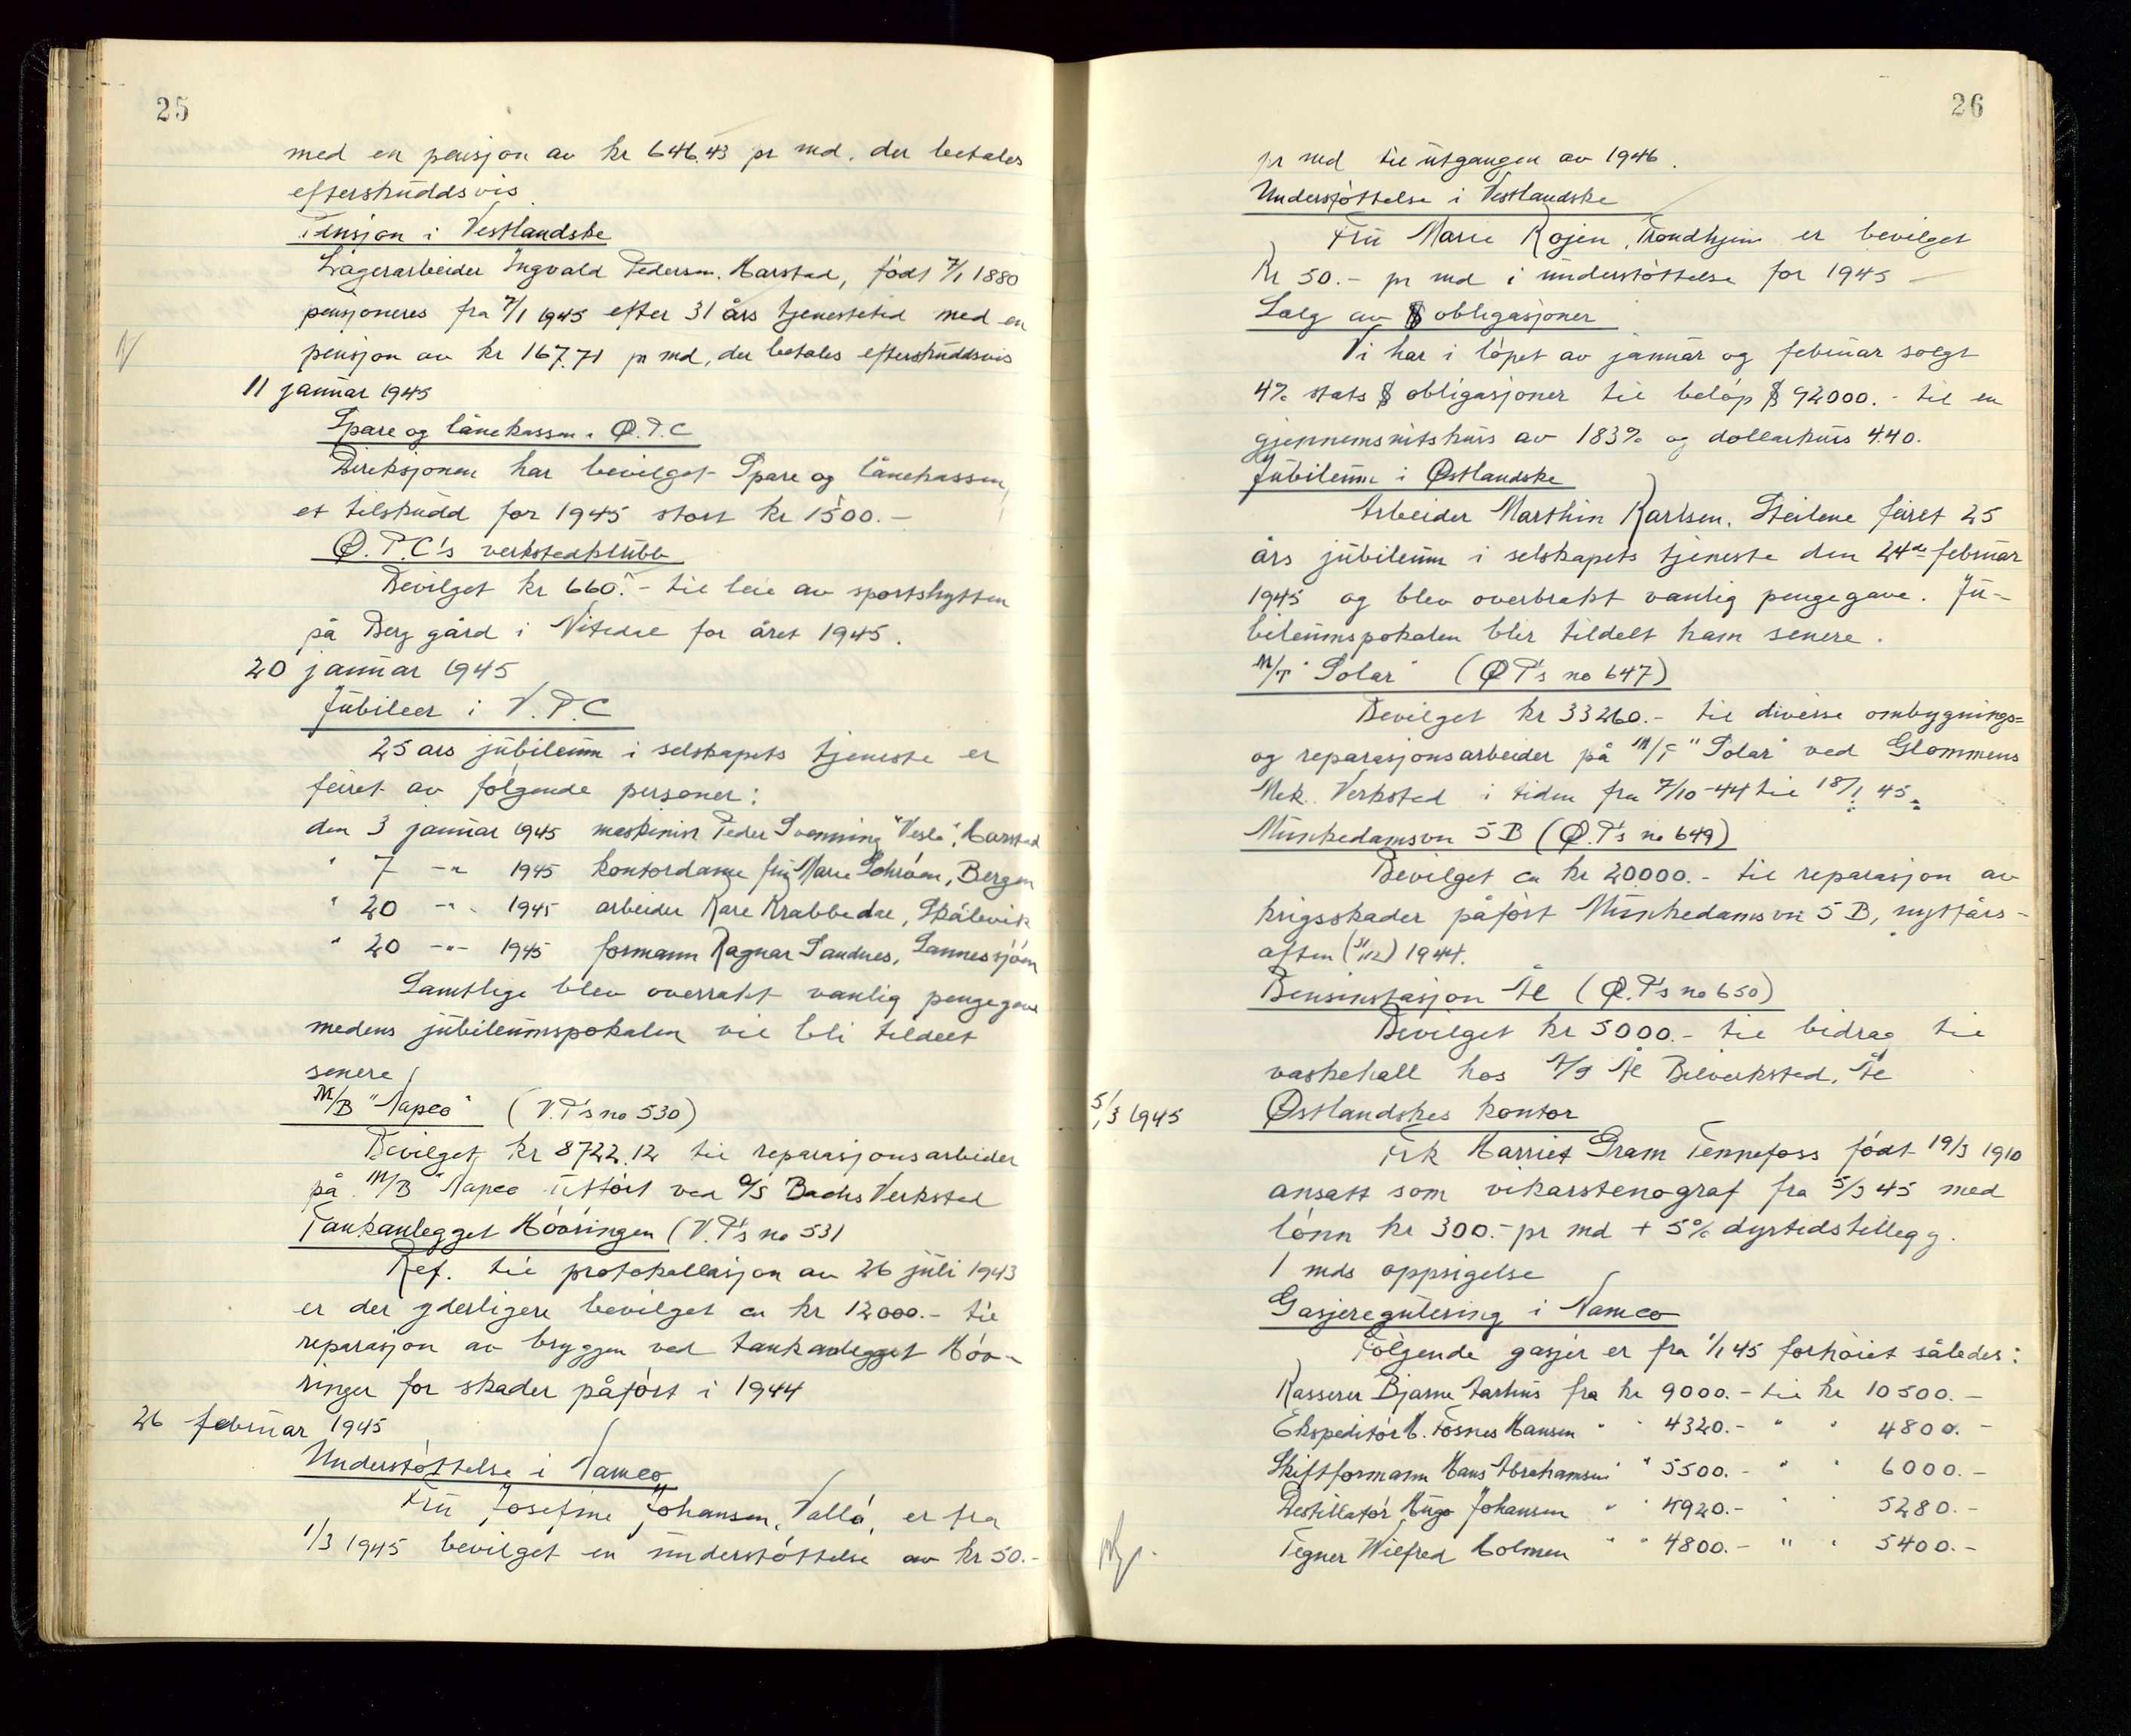 25
med en pensjon av kr 646.43 pr md. der betales
efterskuddsvis
Pensjon i Vestlandske
Lagerarbeider Ingvald Pedersen. Harstad, født 7/1 1880
pensjoneres fra 7/1 1945 efter 31 års tjenestetid med en
pensjon av kr 167.71 pr md, der betales efterskuddsvis
11 januar 1945
Spare og lånekassen i Ø.P.C
Direksjonen har bevilget Spare og lånekassen,
et tilskudd for 1945 stort kr 1500.-
Ø.P.C's verkstedklubb
Bevilget kr 660.- til leie av sportshytten
på Berg gård i Nitedal for året 1945.
20 januar 1945
Jubileer i V.P.C
25 års jubileum i selskapets tjeneste er
feiret av følgende personer:
den 3 januar 1945 maskinist Peder Svenning "Vesla", Harstad
" 7 -"- 1945 kontordame frk Marie Schrøen, Bergen
" 20 -"- 1945 arbeider Kåre Krabbedal, Skålevik
" 20 -"- 1945 formann Ragnar Sandnes, Sannessjøen
Samtlige blev overrakt vanlig pengegave
medens jubileumspokalen vil bli tildelt
senere
M/B "Napco" (V.P's no 530)
Bevilget kr 8722.12 til reparasjonsarbeider
på M/B "Napco utført ved A/S Bachs Verksted
Tankanlegget Høvringen (V.P's no 531
Ref. til protokollasjon av 26 juli 1943
er der yderligere bevilget ca kr 12000.- til
reparasjon av bryggen ved tankanlegget Høv-
ringen for skader påført i 1944
26 februar 1945
Understøttelse i Namco
Fru Josefine Johansen, Vallø, er fra
1/3 1945 bevilget en understøttelse av kr 50.-
26
pr md til utgangen av 1946.
Understøttelse i Vestlandske
Fru Marie Rojen, Trondhjem er bevilget
Kr 50.- pr md i understøttelse for 1945
Salg av $ obligasjoner
Vi har i løpet av januar og februar solgt
4% stats $ obligasjoner til beløp $ 92000.- til en
gjennemsnitskurs av 183% og dollarkurs 4.40.
Jubileum i Østlandske
Arbeider Marthin Karlsen. Steilene feiret 25
års jubileum i selskapets tjeneste den 24de februar
1945 og blev overbrakt vanlig pengegave. Ju-
bileumspokalen blir tildelt ham senere.
M/T "Solar" (Ø P's no 647)
Bevilget kr 33260.- til diverse ombygnings=
og reparasjonsarbeider på M/T "Solar" ved Glommens
Mek. Verksted i tiden fra 7/10-44 til 18/1 45
Munkedamsvn 5 B (Ø.P's no 649)
Bevilget ca kr 20000.- til reparasjon av
krigsskader påført Munkedamsvn 5 B, nyttårs-
aften (31/12) 1944.
Bensinstasjon Ål (Ø.P's no 650)
Bevilget kr 5000.- til bidrag til
vaskehall hos A/S Ål Bilverksted, Ål
5/3 1945 Østlandskes kontor
Frk Harriet Gram Tennefoss født 19/3 1910
ansatt som vikarstenograf fra 5/3 45 med
lønn kr 300.- pr md + 5% dyrtidstillegg.
1 mds oppsigelse
Gasjeregulering i Namco
Følgende gasjer er fra 1/1 45 forhøiet således:
Kasserer Bjarne Aarhus fra kr 9000.- til kr 10500.-
Ekspeditør H. Fosnes Hansen " " 4320.- " " 4800.-
Skiftformann Hans Abrahamsen " 5500.- " " 6000.-
Destillatør Hugo Johansen " " 4920.- " " 5280.-
Tegner Wilfred Holmen " " 4800.- " " 5400.-